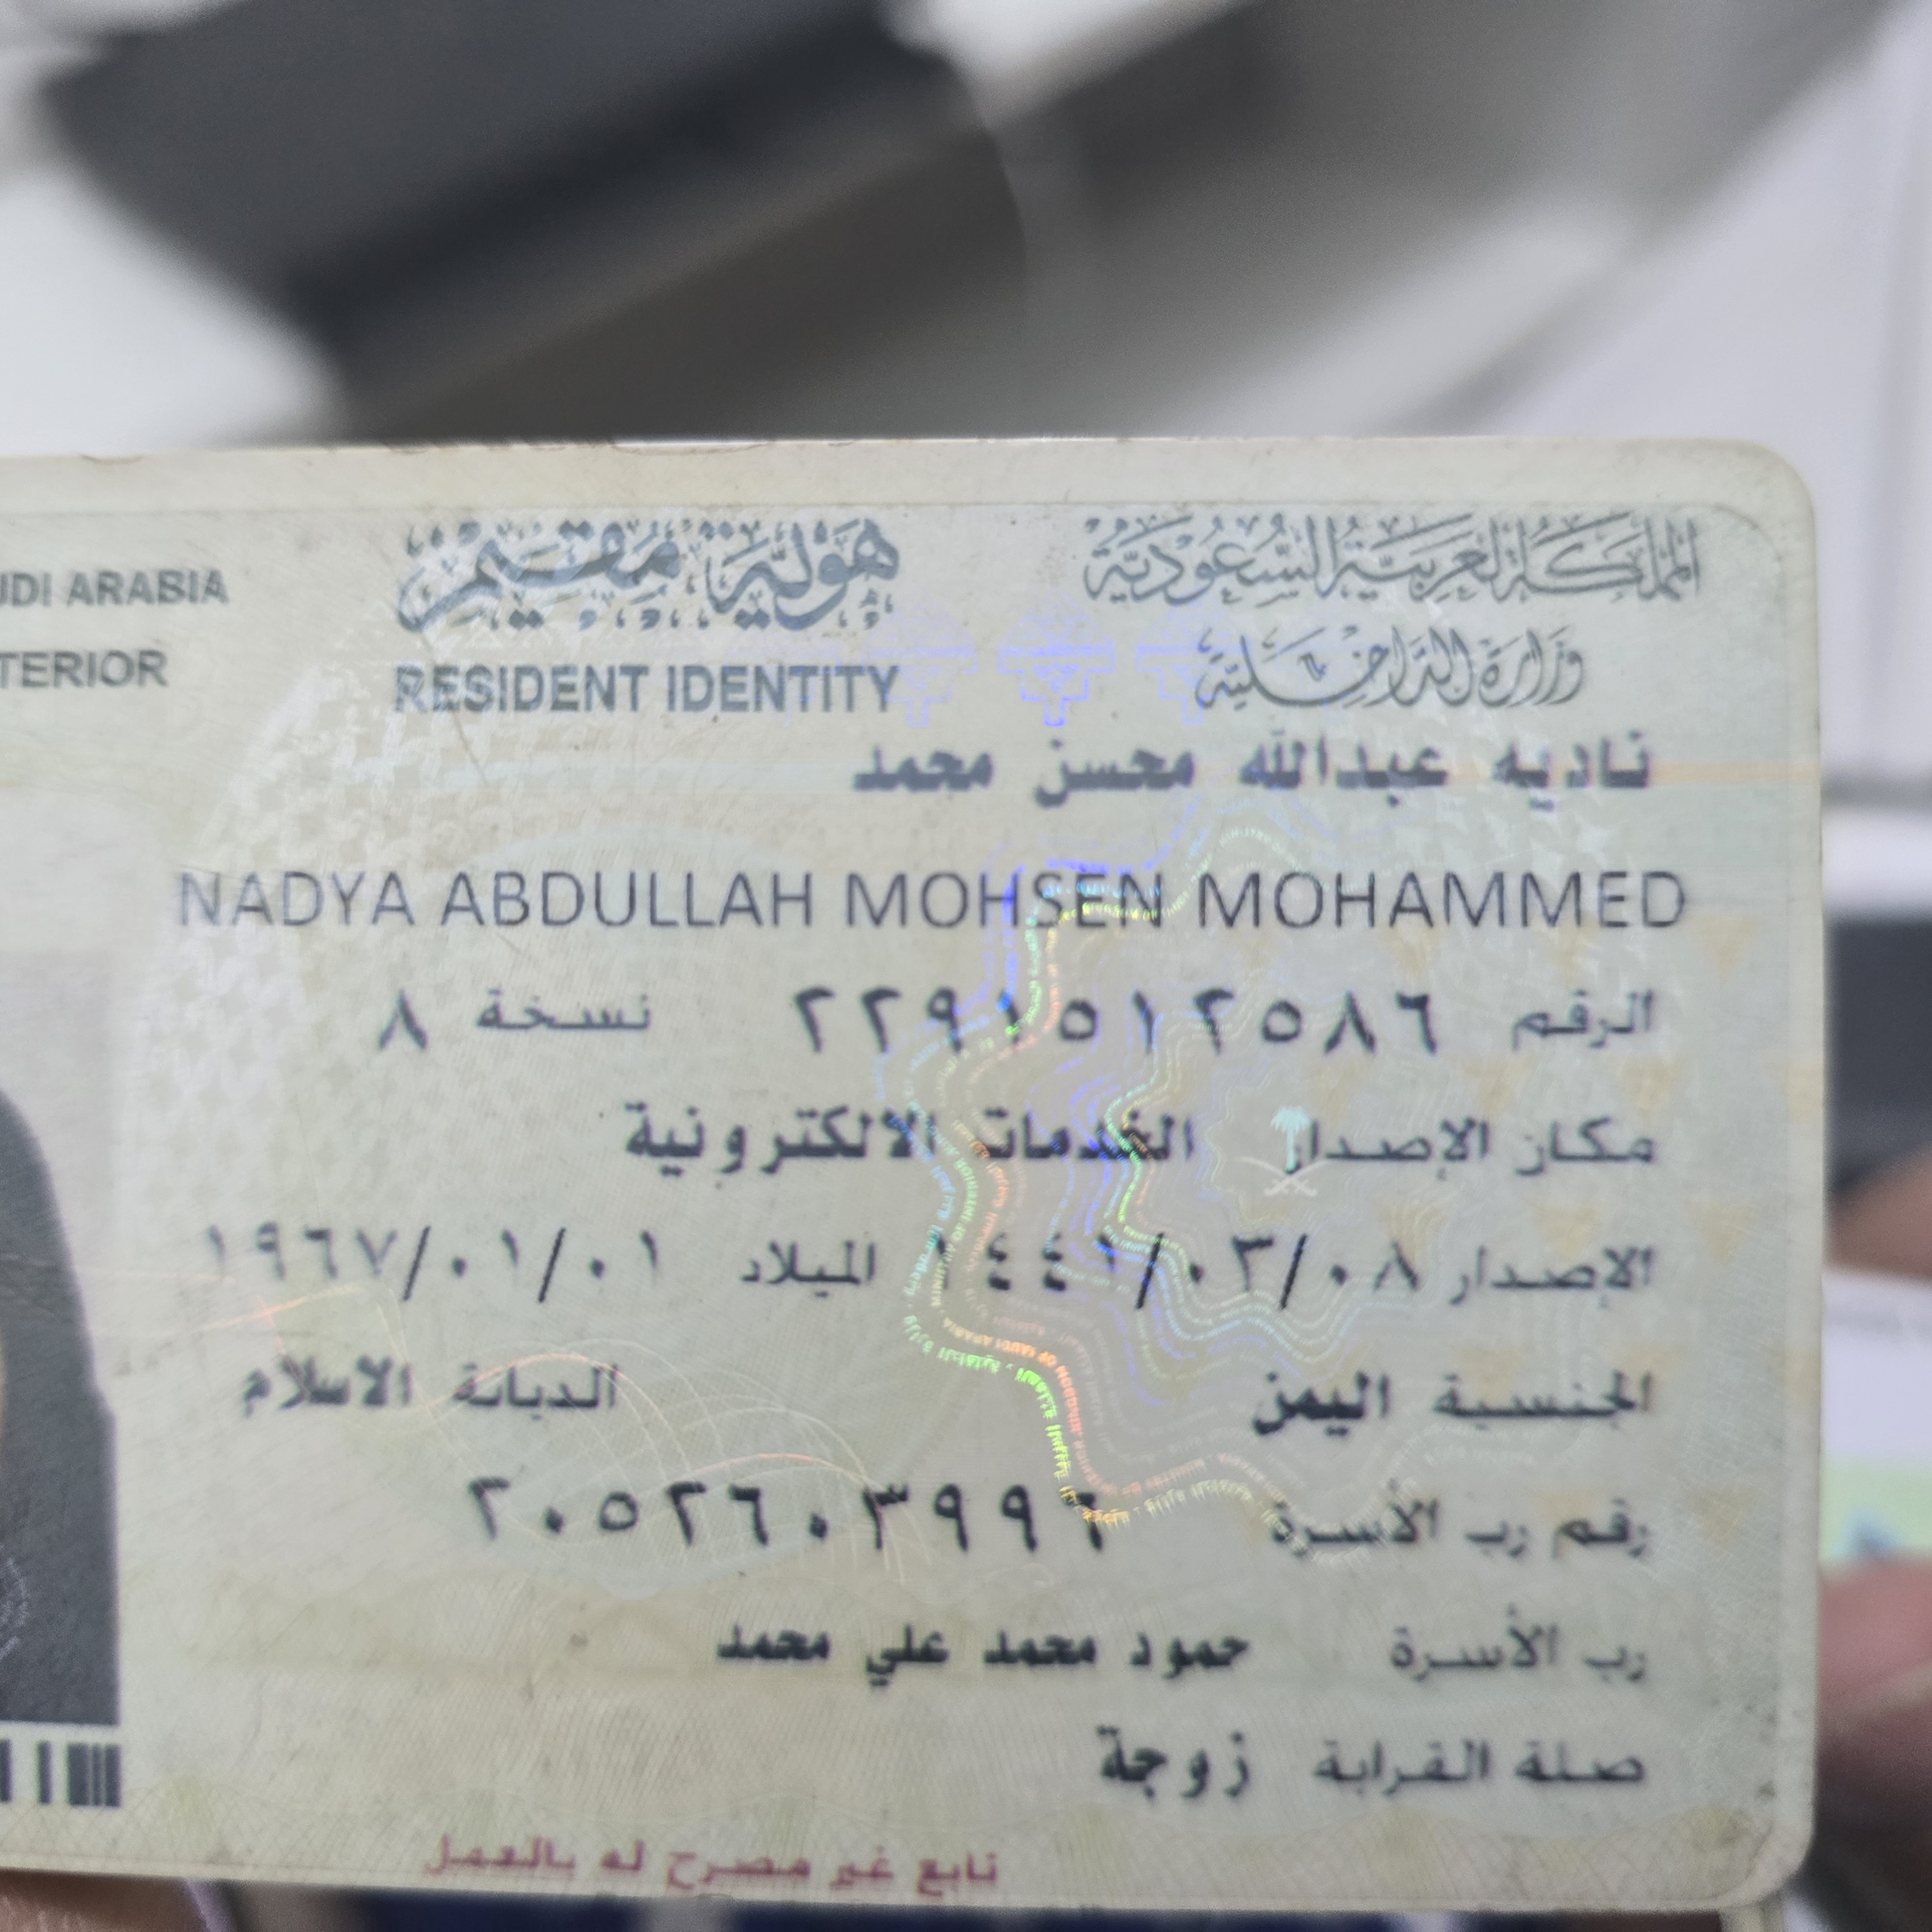 المملكة العربية السعودية
وزارة الداخلية
هوية مقيم
RESIDENT IDENTITY
UDI ARABIA
TERIOR
ناديه عبدالله محسن محمد
NADYA ABDULLAH MOHSEN MOHAMMED
الرقم ٢٢٩١٥١٢٥٨٦ نسخة ٨
مكان الإصدار الخدمات الالكترونية
الإصدار ١٤٤١/٠٣/٠٨ الميلاد ١٩٦٧/٠١/٠١
الجنسية اليمن الديانة الاسلام
رقم رب الأسرة ٢٠٥٢٦٠٣٩٩٦
رب الأسرة حمود محمد علي محمد
صلة القرابة زوجة
تابع غير مصرح له بالعمل